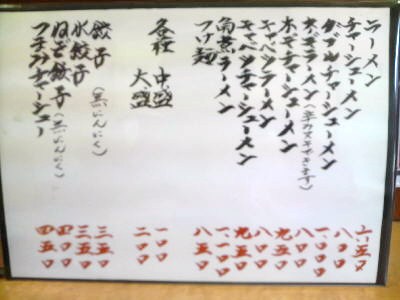 ラーメン 六五〇
チャーシューメン 八〇〇
ダブルチャーシューメン 一〇〇〇
ネギラーメン(辛みヌキできます) 八〇〇
ネギチャーシューメン 九五〇
キャベツラーメン 八〇〇
キャベツチャーシューメン 九五〇
角煮ラーメン 一、一〇〇
つけ麺 八五〇
各種 中盛 一〇〇
大盛 二〇〇
餃子(無にんにく) 三五〇
水餃子 三五〇
ねぎ餃子(無にんにく) 四〇〇
つまみチャーシュー 四五〇